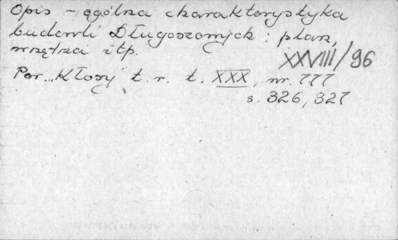 Opis - ogólna charakterystyka
budowli Długoszowych: plan,
wnętrza itp.
XXVIII/96
Por. "Kłosy" t. r. t. XXX, nr. 777
s. 326, 327